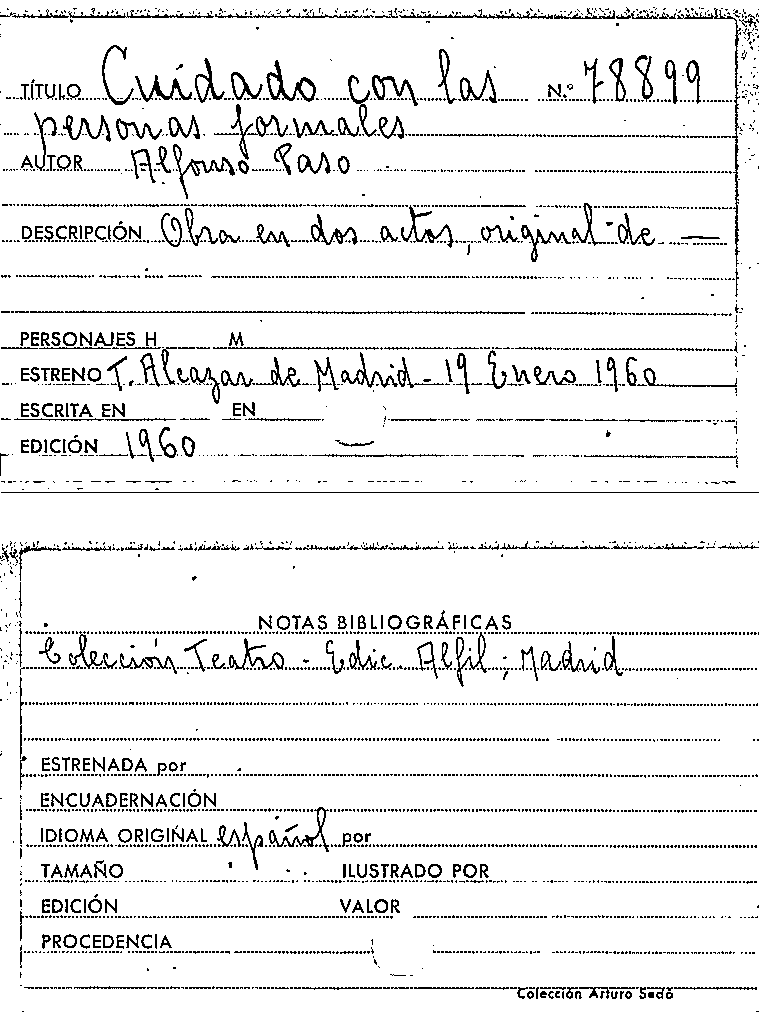 TÍTULO Cuidado con las N.º 78899
personas formales
AUTOR Alfonso Paso
DESCRIPCIÓN Obra en dos actos, original de —
PERSONAJES H M
ESTRENO T. Alcazar de Madrid - 19 Enero 1960
ESCRITA EN EN
EDICIÓN 1960
NOTAS BIBLIOGRÁFICAS
Colección Teatro - Edic. Alfil; Madrid
ESTRENADA por
ENCUADERNACIÓN
IDIOMA ORIGINAL español por
TAMAÑO ILUSTRADO POR
EDICIÓN VALOR
PROCEDENCIA
Colección Arturo Sedó